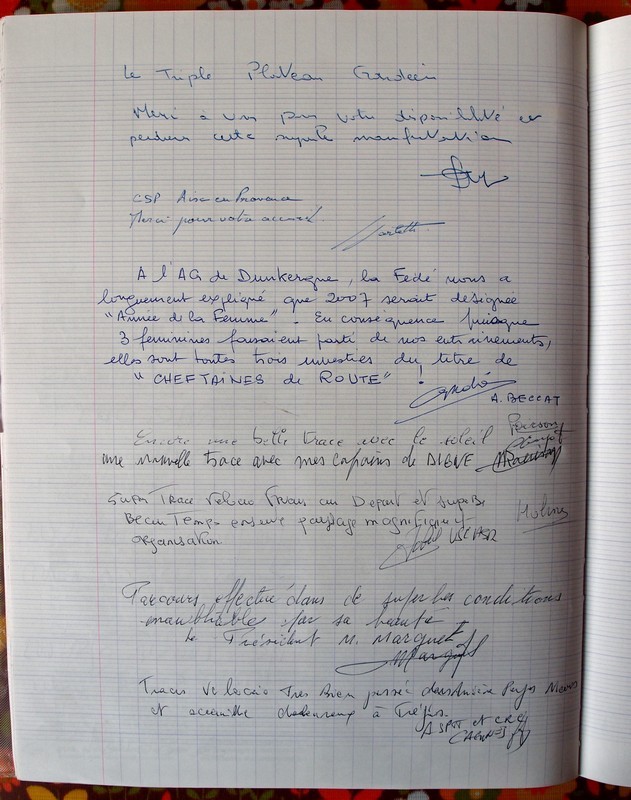 Le Triple Plateau
Merci à vous pour votre disponibilité et
perdurer cette superbe manifestation
CSP Aix en Provence
Merci pour votre accueil.
A l'AG de Dunkerque, la Fédé nous a
longuement expliqué que 2007 serait désignée
"Année de la Femme". En conséquence puisque
3 féminines faisaient parti de nos entrainements,
elles sont toutes trois investies du titre de
"CHEFTAINES de ROUTE" !
A. BECCAT
Encore une belle trace avec le soleil
une nouvelle trace avec mes copains de DIGNE
Super Trace Vélocio Frais au Départ et superbe
Beau Temps ensuite paysage magnifique et
organisation.
Parcours effectué dans de superbes conditions
inoubliables par sa beauté
Le Président M. Marquet
Traces Vélocio Très Bien passée dans
et accueille à Fréjus.
ASPTT et CRC
CAGNES